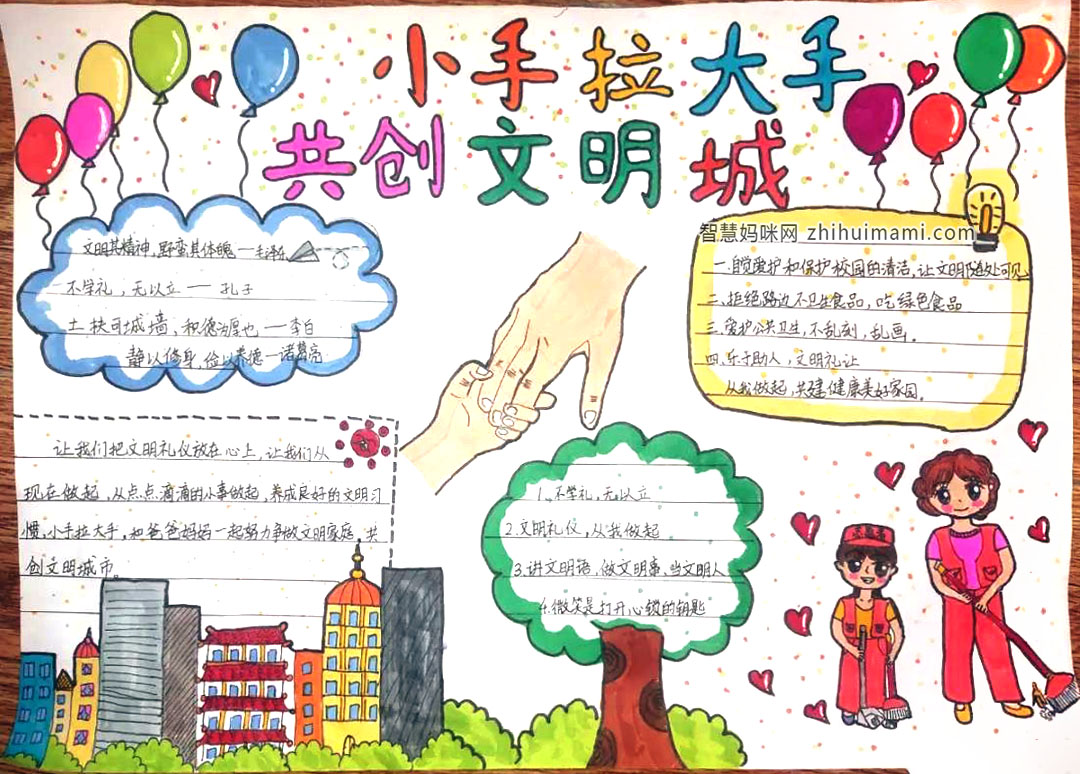 小手拉大手
共创文明城
文明其精神,野蛮其体魄—毛泽东
不学礼,无以立—孔子
土扶可成墙、积德为厚也—李白
静以修身,俭以养德—诸葛亮
智慧妈咪网 zhihuimami.com
一.自觉爱护和保护校园的清洁,让文明随处可见
二、拒绝路边不卫生食品,吃绿色食品
三.爱护公共卫生,不乱刻,乱画。
四.乐于助人,文明礼让
从我做起,共建健康美好家园。
让我们把文明礼仪放在心上,让我们从
现在做起,从点点滴滴的小事做起,养成良好的文明习
惯,小手拉大手,和爸爸妈妈一起努力争做文明家庭,共
创文明城市。
1.不学礼,无以立
2.文明礼仪,从我做起
3.讲文明语、做文明事,当文明人
4.微笑是打开心锁的钥匙